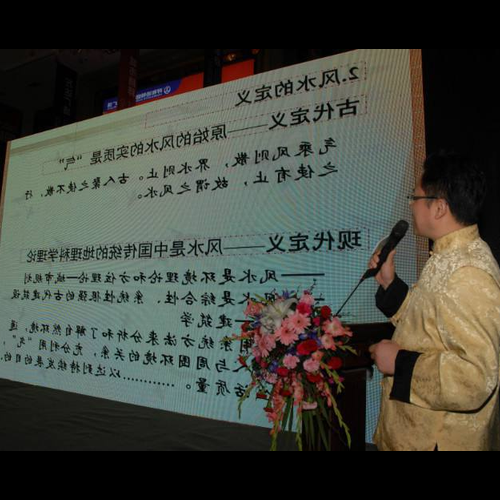 2.风水的定义
古代定义——原始的风水的实质是“气”
气乘风则散，界水则止。古人聚之使不散，行
之使有止，故谓之风水。
现代定义——风水是中国传统的地理科学理论
——风水是环境理论和方位理论—城市规划
风水是综合性、系统性很强的古代建筑设
建筑学
系统方法来分析和了解自然环境，
与周围环境的关系，充分利用“气”，
以达到持续发展的目的
活质量。…………